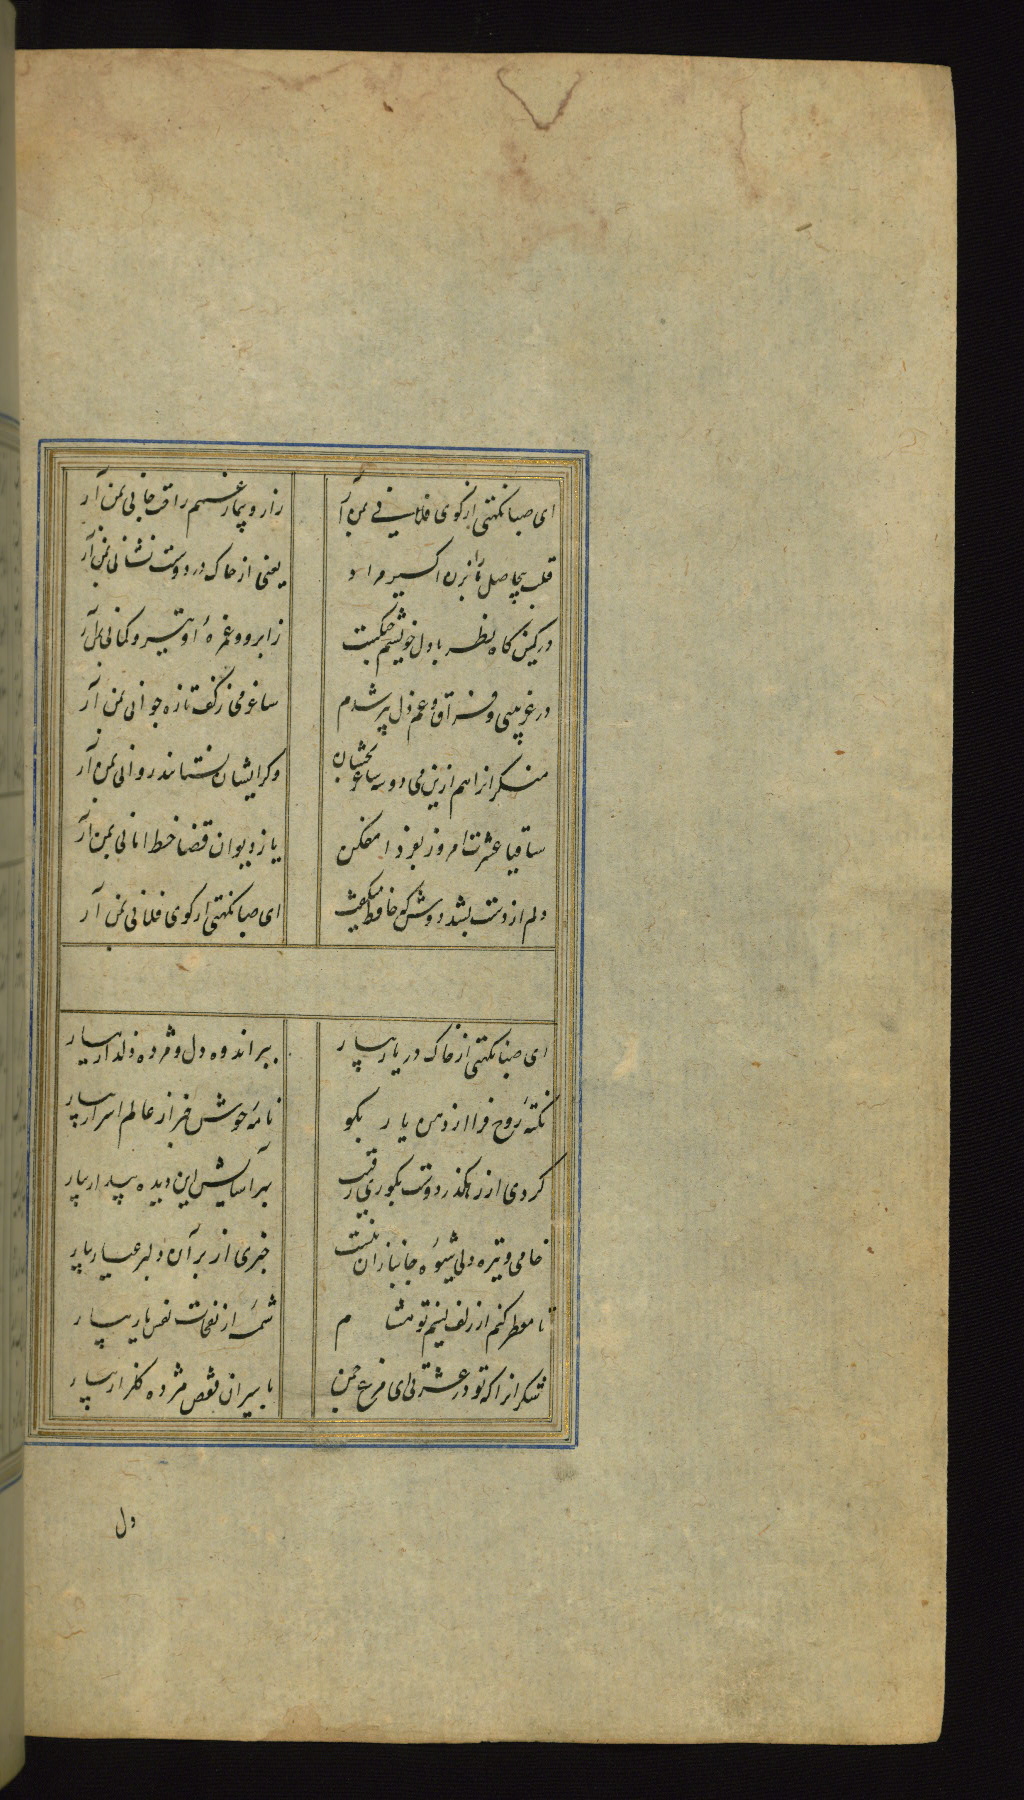 ای صبا نکهتی از کوی فلانی بمن آر
زار و بیمار غمم راحت جانی بمن آر
قلب بیحاصل ما را بزن اکسیر مراد
یعنی از خاک در دوست نشانی بمن آر
در کمین کاه نظر با دل خویشم جنکست
ز ابرو و غمزهٔ او تیر و کمانی بمن آر
در غریبی و فراق و غم دل پیر شدم
ساغر می ز کف تازه جوانی بمن آر
منکرانرا هم ازین می دو سه ساغر بچشان
وکر ایشان نستانند روانی بمن آر
ساقیا عشرت امروز بفردا مفکن
یا ز دیوان قضا خط امانی بمن آر
دلم از دست بشد دوش که حافظ میکفت
ای صبا نکهتی از کوی فلانی بمن آر
ای صبا نکهتی از خاک در یار بیار
ببر اندوه دل و مژده دلدار بیار
نکتهٔ روح فزا از دهن یار بکو
نامهٔ خوش خبر از عالم اسرار بیار
کردی از رهکذر دوست بکوری رقیب
بهر آسایش این دیده بیدار بیار
خامی و تیره دلی شیوهٔ جانبازان نیست
خبری از بر آن دلبر عیار بیار
تا معطر کنم از لطف نسیم تو مشام
شمهٔ از نفحات نفس یار بیار
شکر آنرا که تو در عشرتی ای مرغ چمن
باسیران قفص مژده کلزار بیار
دل